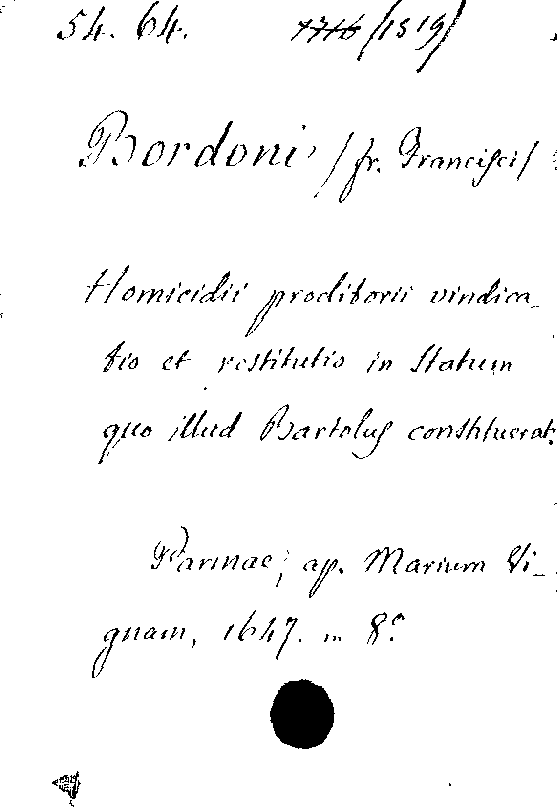 54. 64. 7716 /1519/
Bordoni /fr. Francisci/
Homicidii proditorii vindica_
tio et restitutio in Statum
quo illud Bartolus constituerat.
Parmae, ap. Marium Vi_
gnam, 1647. in 8º.